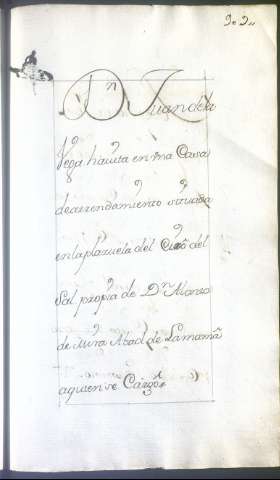 Dⁿ Juan de la
Vega havita en vna Casa
de arrendamiento situada
en la plazuela del del
Sal propia de Dⁿ Alonso
de Mora Abad de Lamamã
a quien se Cargó